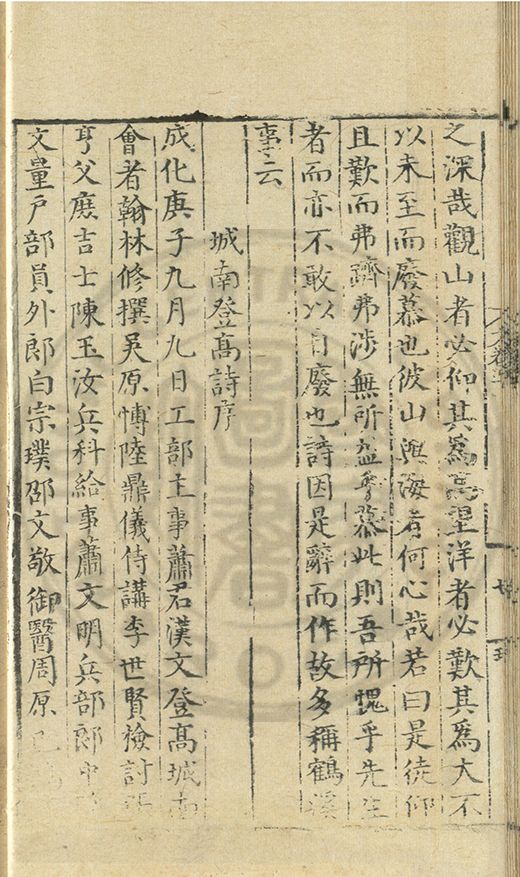 之深哉觀山者必仰其為高望洋者必歎其為大不
以未至而廢慕也彼山與海者何心哉若曰是徒仰
且歎而弗躋弗涉無所益乎慕此則吾所愧乎先生
者而亦不敢以自廢也詩因是辭而作故多稱鶴溪
事云
城南登高詩序
成化庚子九月九日工部主事蕭君漢文登高城南
會者翰林修撰吳原博陸鼎儀侍講李世賢檢討
亨父庶吉士陳玉汝兵科給事蕭文明兵部郎中
文量戶部員外郎白宗璞邵文敬御醫周原己